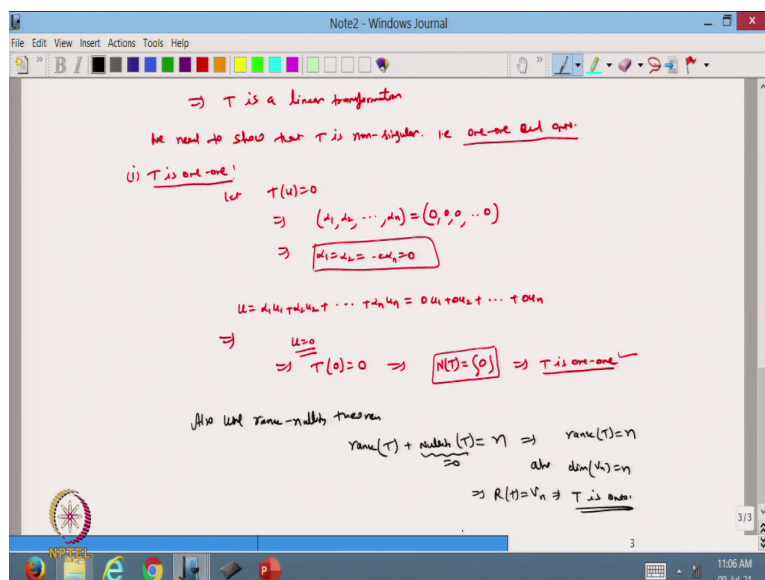 Note2 - Windows Journal
File Edit View Insert Actions Tools Help
B I
⇒ T is a linear transformation
We need to show that T is non-singular. ie one-one and onto.
(i) T is one-one:
let T(u)=0
⇒ (α1, α2, ..., αn) = (0, 0, 0, .. 0)
⇒ α1=α2= --αn=0
u= α1u1+α2u2+ ... +αnun = 0u1+0u2+ ... +0un
⇒ u=0
⇒ T(0)=0 ⇒ N(T)={0} ⇒ T is one-one
Also use rank-nullity theorem
rank(T) + nullity(T) = n ⇒ rank(T)=n
=0 also dim(Vn)=n
⇒ R(T)=Vn ⇒ T is onto.
3/3
3
NPTEL
11:06 AM
09-Jul-21